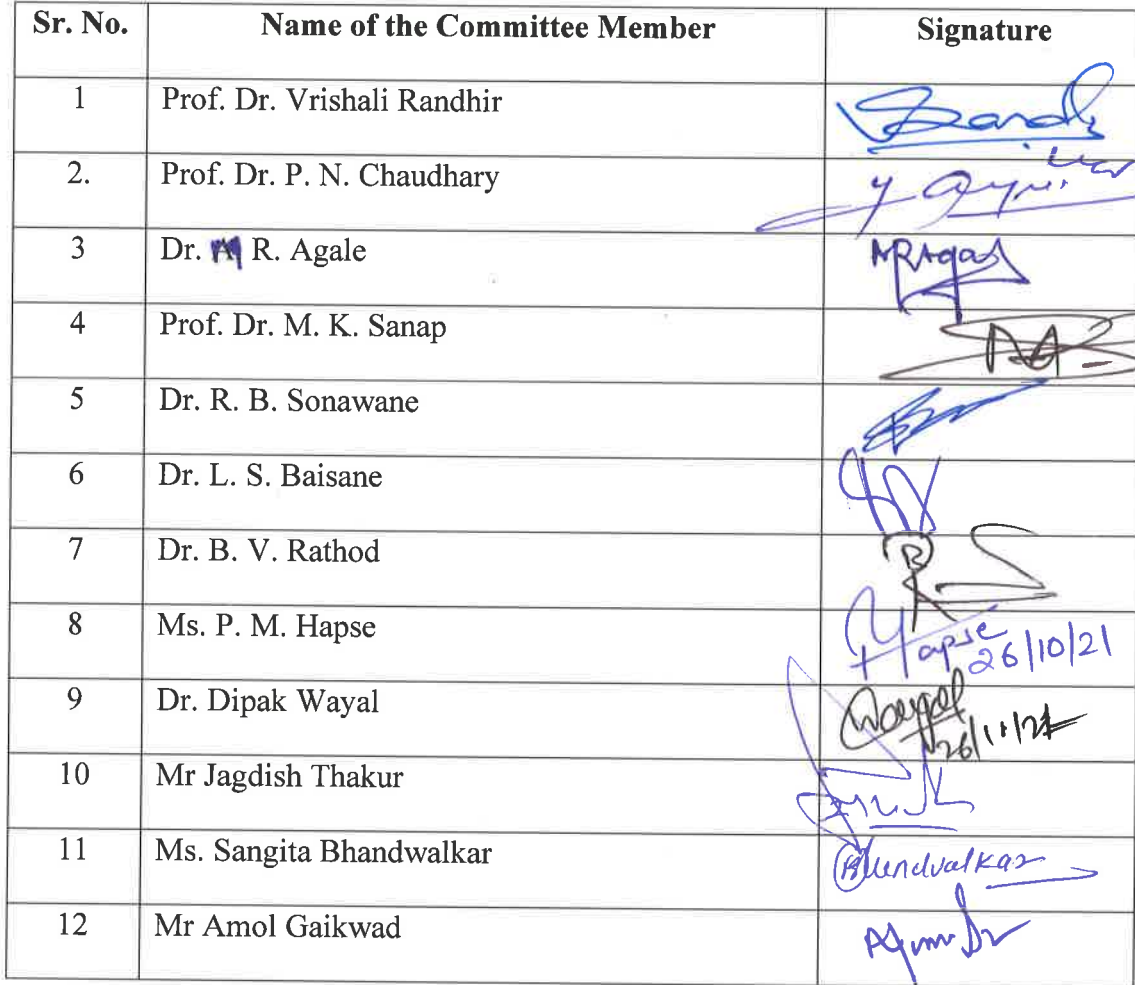 Sr. No. Name of the Committee Member Signature
1 Prof. Dr. Vrishali Randhir
2. Prof. Dr. P. N. Chaudhary
3 Dr. A R. Agale
4 Prof. Dr. M. K. Sanap
5 Dr. R. B. Sonawane
6 Dr. L. S. Baisane
7 Dr. B. V. Rathod
8 Ms. P. M. Hapse Hapse
26/10/21
9 Dr. Dipak Wayal Wayal
10 Mr Jagdish Thakur
11 Ms. Sangita Bhandwalkar
12 Mr Amol Gaikwad